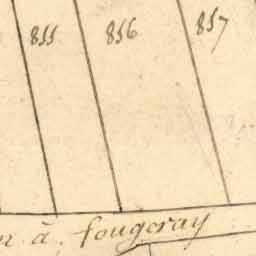 855 856 857
à fougeray